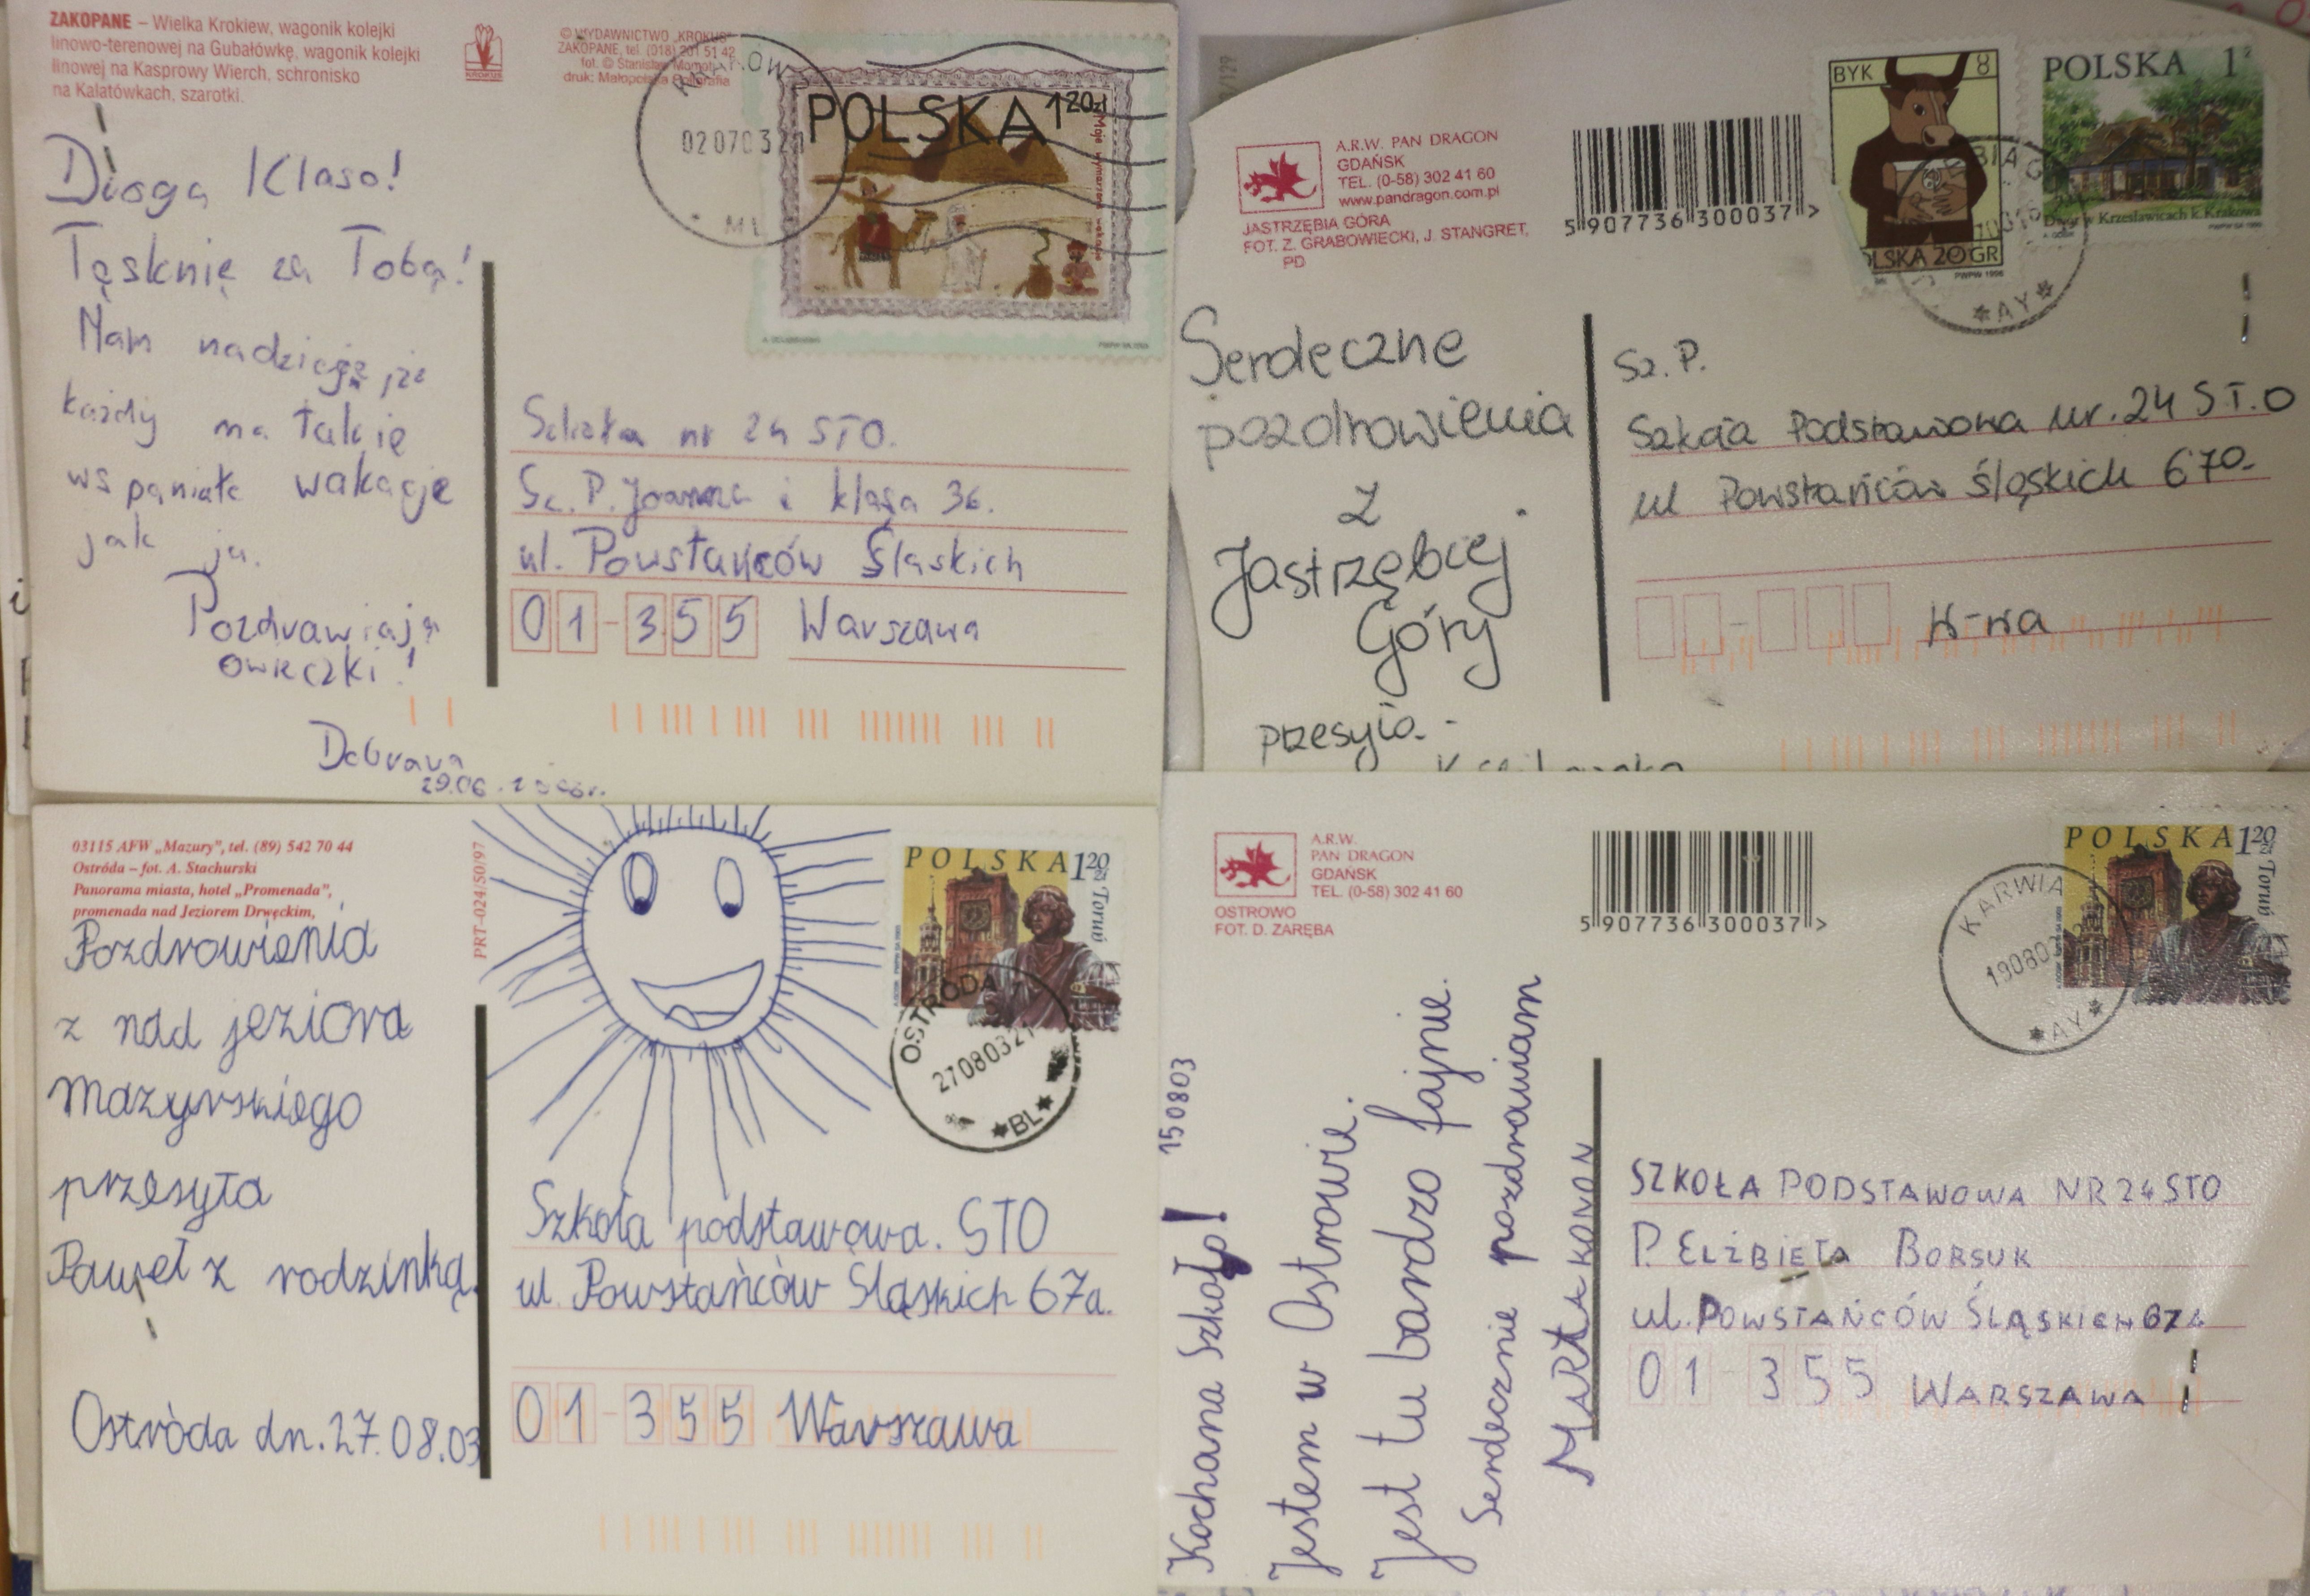 ZAKOPANE – Wielka Krokiew, wagonik kolejki
linowo-terenowej na Gubałówkę, wagonik kolejki
linowej na Kasprowy Wierch, schronisko
na Kalatówkach, szarotki.
KROKUS
© WYDAWNICTWO „KROKUS”
ZAKOPANE, tel. (018) 201 51 42
fot. © Stanisław Momot
druk: Małopolska Poligrafia
020703
POLSKA 1 20 zł
Moje wymarzone wakacje
Droga Klaso!
Tęsknię za Tobą!
Mam nadzieję, że
każdy ma takie
wspaniałe wakacje
jak ja.
Pozdrawiają
owieczki!
Dobrawa
29.06.
Szkoła nr 24 STO.
Sz. P. Joanna i klasa 3c.
ul. Powstańców Śląskich
01-355 Warszawa
A.R.W. PAN DRAGON
GDAŃSK
TEL. (0-58) 302 41 60
www.pandragon.com.pl
JASTRZĘBIA GÓRA
FOT. Z. GRABOWIECKI, J. STANGRET,
PD
5 907736 300037 >
BYK 8
POLSKA 20 GR
PWPW 1996
POLSKA 1
Dwór w Krzesławicach k. Krakowa
*AY*
Serdeczne
pozdrowienia
z
Jastrzębiej
Góry
przesyła -
Sz. P.
Szkoła Podstawowa nr. 24 S T.O
ul Powstańców Śląskich 67a
W-wa
03115 AFW „Mazury”, tel. (89) 542 70 44
Ostróda – fot. A. Stachurski
Panorama miasta, hotel „Promenada”,
promenada nad Jeziorem Drwęckim,
PRT-024/S0/97
POLSKA 1 20 zł
Toruń
OSTRÓDA
27080321
*BL*
Pozdrowienia
z nad jeziora
mazurskiego
przesyła
Paweł z rodzinką.
Ostróda dn. 27.08.03
Szkoła podstawowa. STO
ul. Powstańców Śląskich 67a.
01-355 Warszawa
A.R.W.
PAN DRAGON
GDAŃSK
TEL. (0-58) 302 41 60
OSTROWO
FOT. D. ZARĘBA
5 907736 300037 >
POLSKA 1 20 zł
Toruń
KARWIA
190803
*AY*
150803
Kochana Szkoło!
Jestem w Ostrowie.
Jest tu bardzo fajnie.
Serdecznie pozdrawiam
MARTA KONON
SZKOŁA PODSTAWOWA NR 24 STO
P. ELŻBIETA BORSUK
ul. POWSTAŃCÓW ŚLĄSKICH 67a
01-355 WARSZAWA